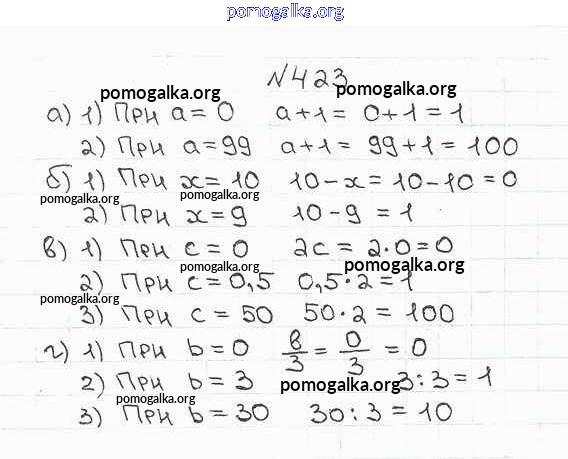 pomogalka.org
№423
pomogalka.org pomogalka.org
а) 1) При a = 0 a + 1 = 0 + 1 = 1
2) При a = 99 a + 1 = 99 + 1 = 100
б) 1) При x = 10 10 - x = 10 - 10 = 0
pomogalka.org pomogalka.org
2) При x = 9 10 - 9 = 1
в) 1) При c = 0 2c = 2·0 = 0
pomogalka.org pomogalka.org
2) При c = 0,5 0,5·2 = 1
pomogalka.org
3) При c = 50 50·2 = 100
г) 1) При b = 0 b/3 = 0/3 = 0
2) При b = 3 pomogalka.org 3:3 = 1
pomogalka.org
3) При b = 30 30:3 = 10
pomogalka.org